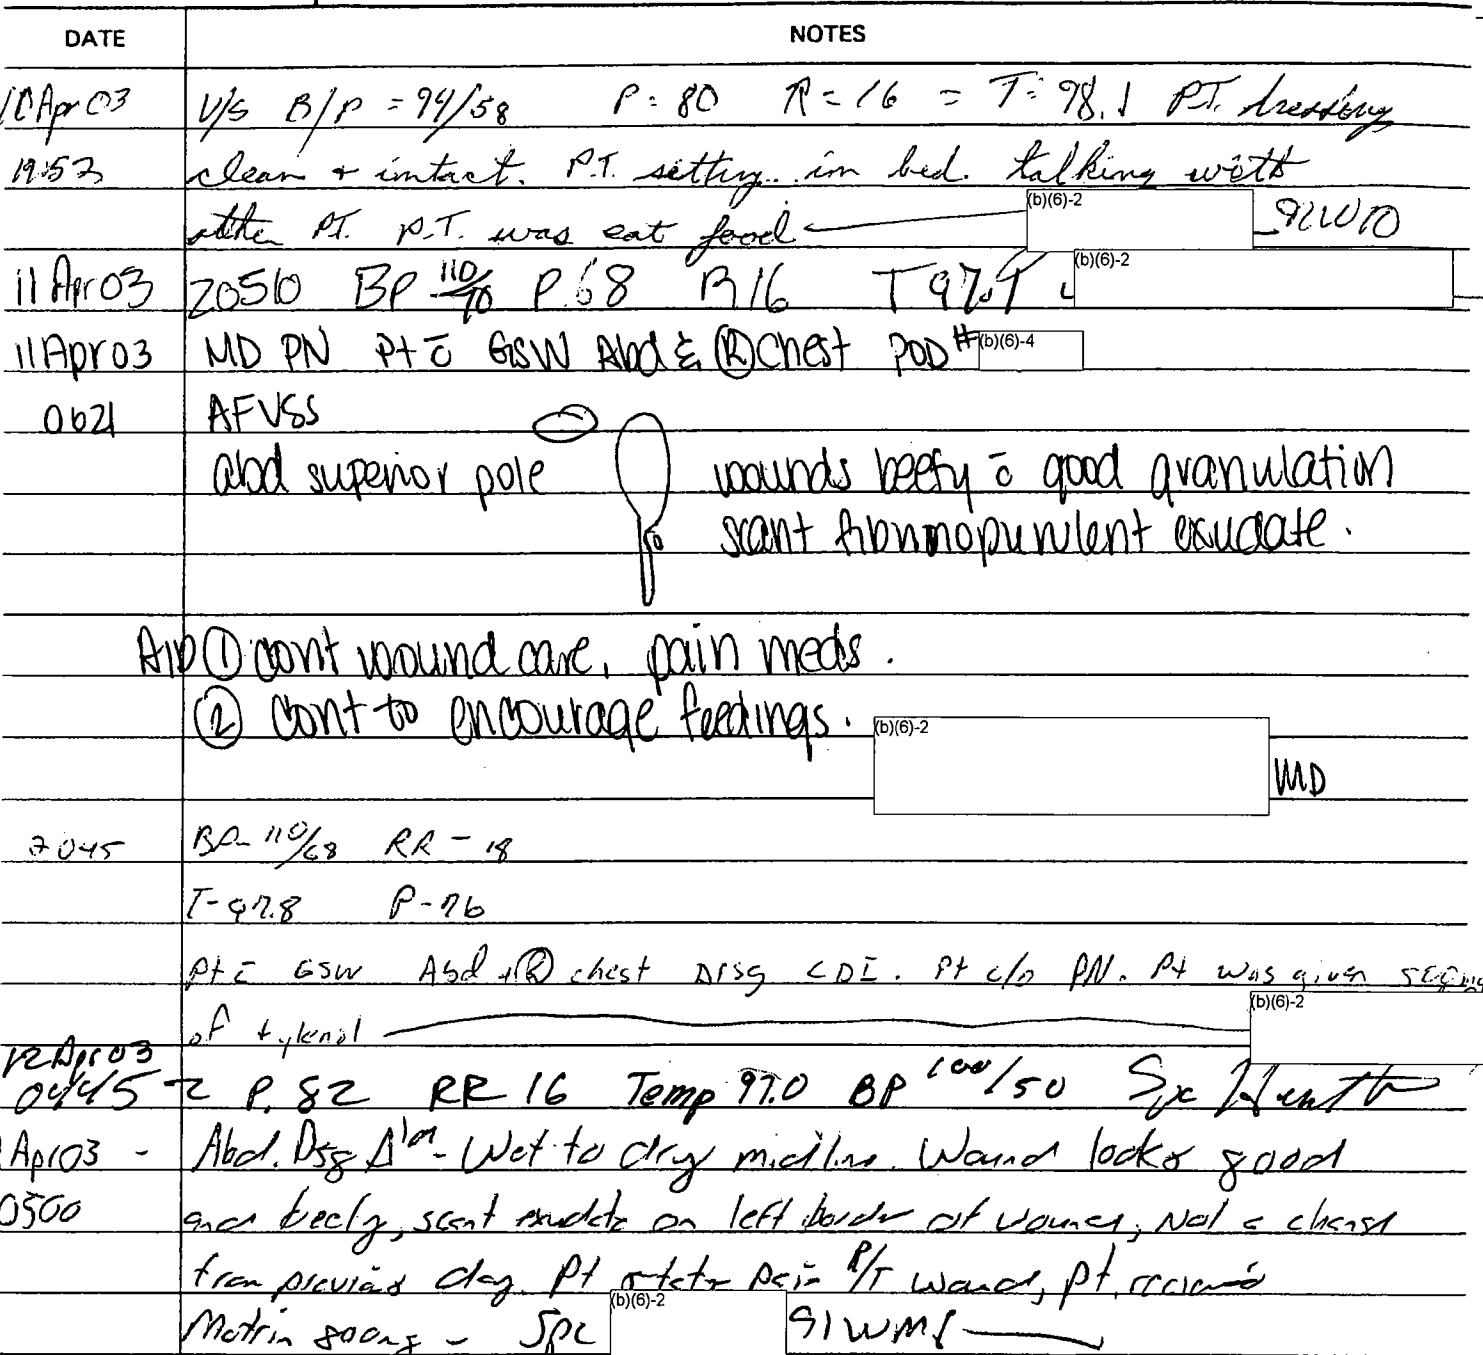 DATE NOTES
10 Apr 03 V/S B/P = 94/58 P: 80 R = 16 = T= 98.1 P.T. dressing
19:52 clean + intact. P.T. setting in bed. talking with
other PT. P.T. was eat food (b)(6)-2 92W10
11 Apr 03 BP 110/70 P 68 R 16 T 97.9 (b)(6)-2
11 Apr 03 MD PN Pt c̄ GSW Abd & Ⓡ Chest POD # (b)(6)-4
0621 AFVSS
abd superior pole wounds beefy c̄ good granulation
scant exudate.
A/P ① cont wound care, pain meds.
② cont to encourage feedings. (b)(6)-2
MD
2045 BP- 110/68 RR - 18
T-97.8 P-76
Pt c̄ GSW Abd + Ⓡ chest Drsg CDI. Pt c/o PN. Pt was given
of tylenol (b)(6)-2
12 Apr 03
0445 P. 82 RR 16 Temp 97.0 BP 100/50 Spc
Apr 03 - Abd. Dsg Δ - Wet to dry midline. Wound looks good
0500 and beefy, scant exudate on left border of wound, Not a change
from previous day. Pt states pain R/T wound, pt. received
Motrin 800mg - Spc (b)(6)-2 91WM6